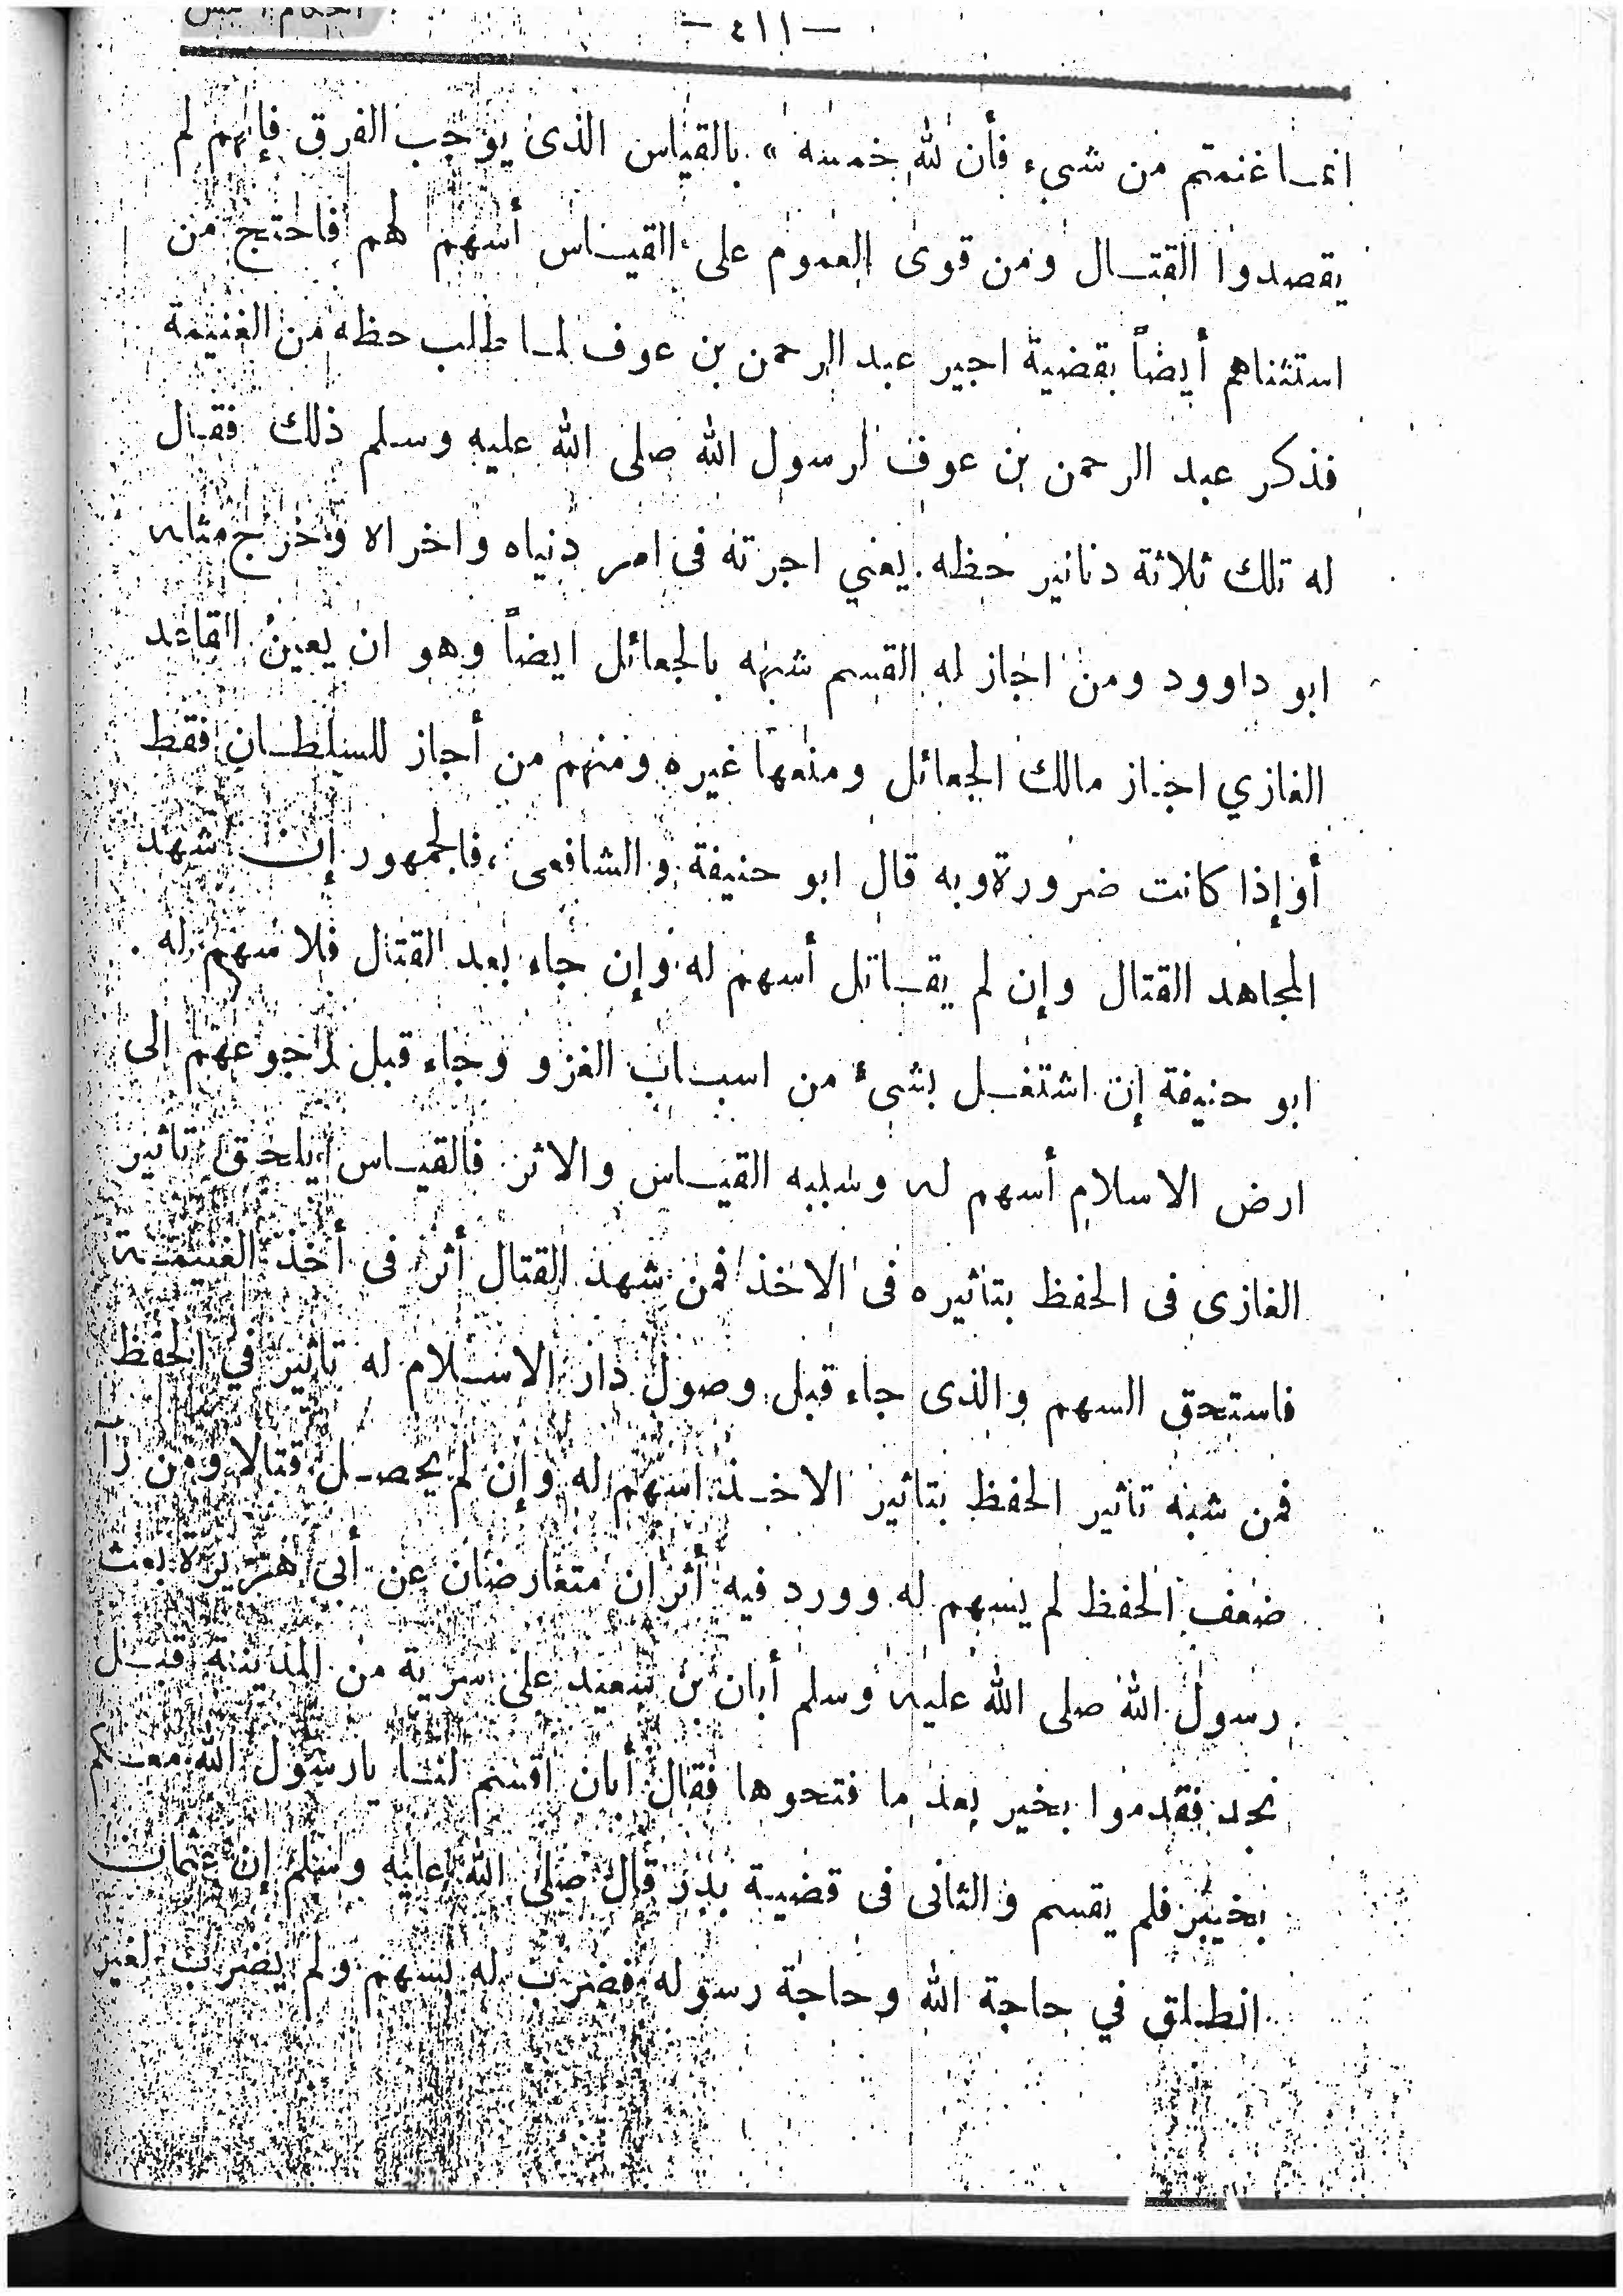 — ٤١١ —
انما غنمتم من شيء فأن لله خمسه » بالقياس الذى يوجب الفرق فإنهم لم
يقصدوا القتال ومن قوى العموم على القياس أسهم لهم فاحتج من
استثناهم أيضاً بقضية اجير عبد الرحمن بن عوف لما طلب حظه من الغنيمة
فذكر عبد الرحمن بن عوف لرسول الله صلى الله عليه وسلم ذلك فقال
له تلك ثلاثة دنانير حظه يعني اجرته فى امر دنياه واخراه وخرج مثله
ابو داوود ومن اجاز له القسم شبهه بالجعائل ايضاً وهو ان يعين القاعد
الغازي اجاز مالك الجعائل ومنعها غيره ومنهم من أجاز للسلطان فقط
أو إذا كانت ضرورة وبه قال ابو حنيفة والشافعى ، فالجمهور إن شهد
المجاهد القتال وإن لم يقاتل أسهم له وإن جاء بعد القتال فلا سهم له .
ابو حنيفة إن اشتغل بشىء من اسباب الغزو وجاء قبل رجوعهم الى
ارض الاسلام أسهم له وسببه القياس والاثر فالقياس يلحق تاثير
الغازى فى الحفظ بتاثيره فى الاخذ فمن شهد القتال أثر فى أخذ الغنيمة
فاستحق السهم والذى جاء قبل وصول دار الاسلام له تاثير في الحفظ
فمن شبه تاثير الحفظ بتاثير الاخذ اسهم له وإن لم يحصل قتالا ومن رآ
ضعف الحفظ لم يسهم له وورد فيه أثران متعارضان عن أبى هريرة بعث
رسول الله صلى الله عليه وسلم أبان بن سعيد على سرية من المدينة قبل
نجد فقدموا بخير بعد ما فتحوها فقال أبان اقسم لنا يا رسول الله معكم
بخيبر فلم يقسم والثانى فى قضية بدر قال صلى الله عليه وسلم إن عثمان
انطلق في حاجة الله وحاجة رسوله فضرب له بسهم ولم يضرب لغير